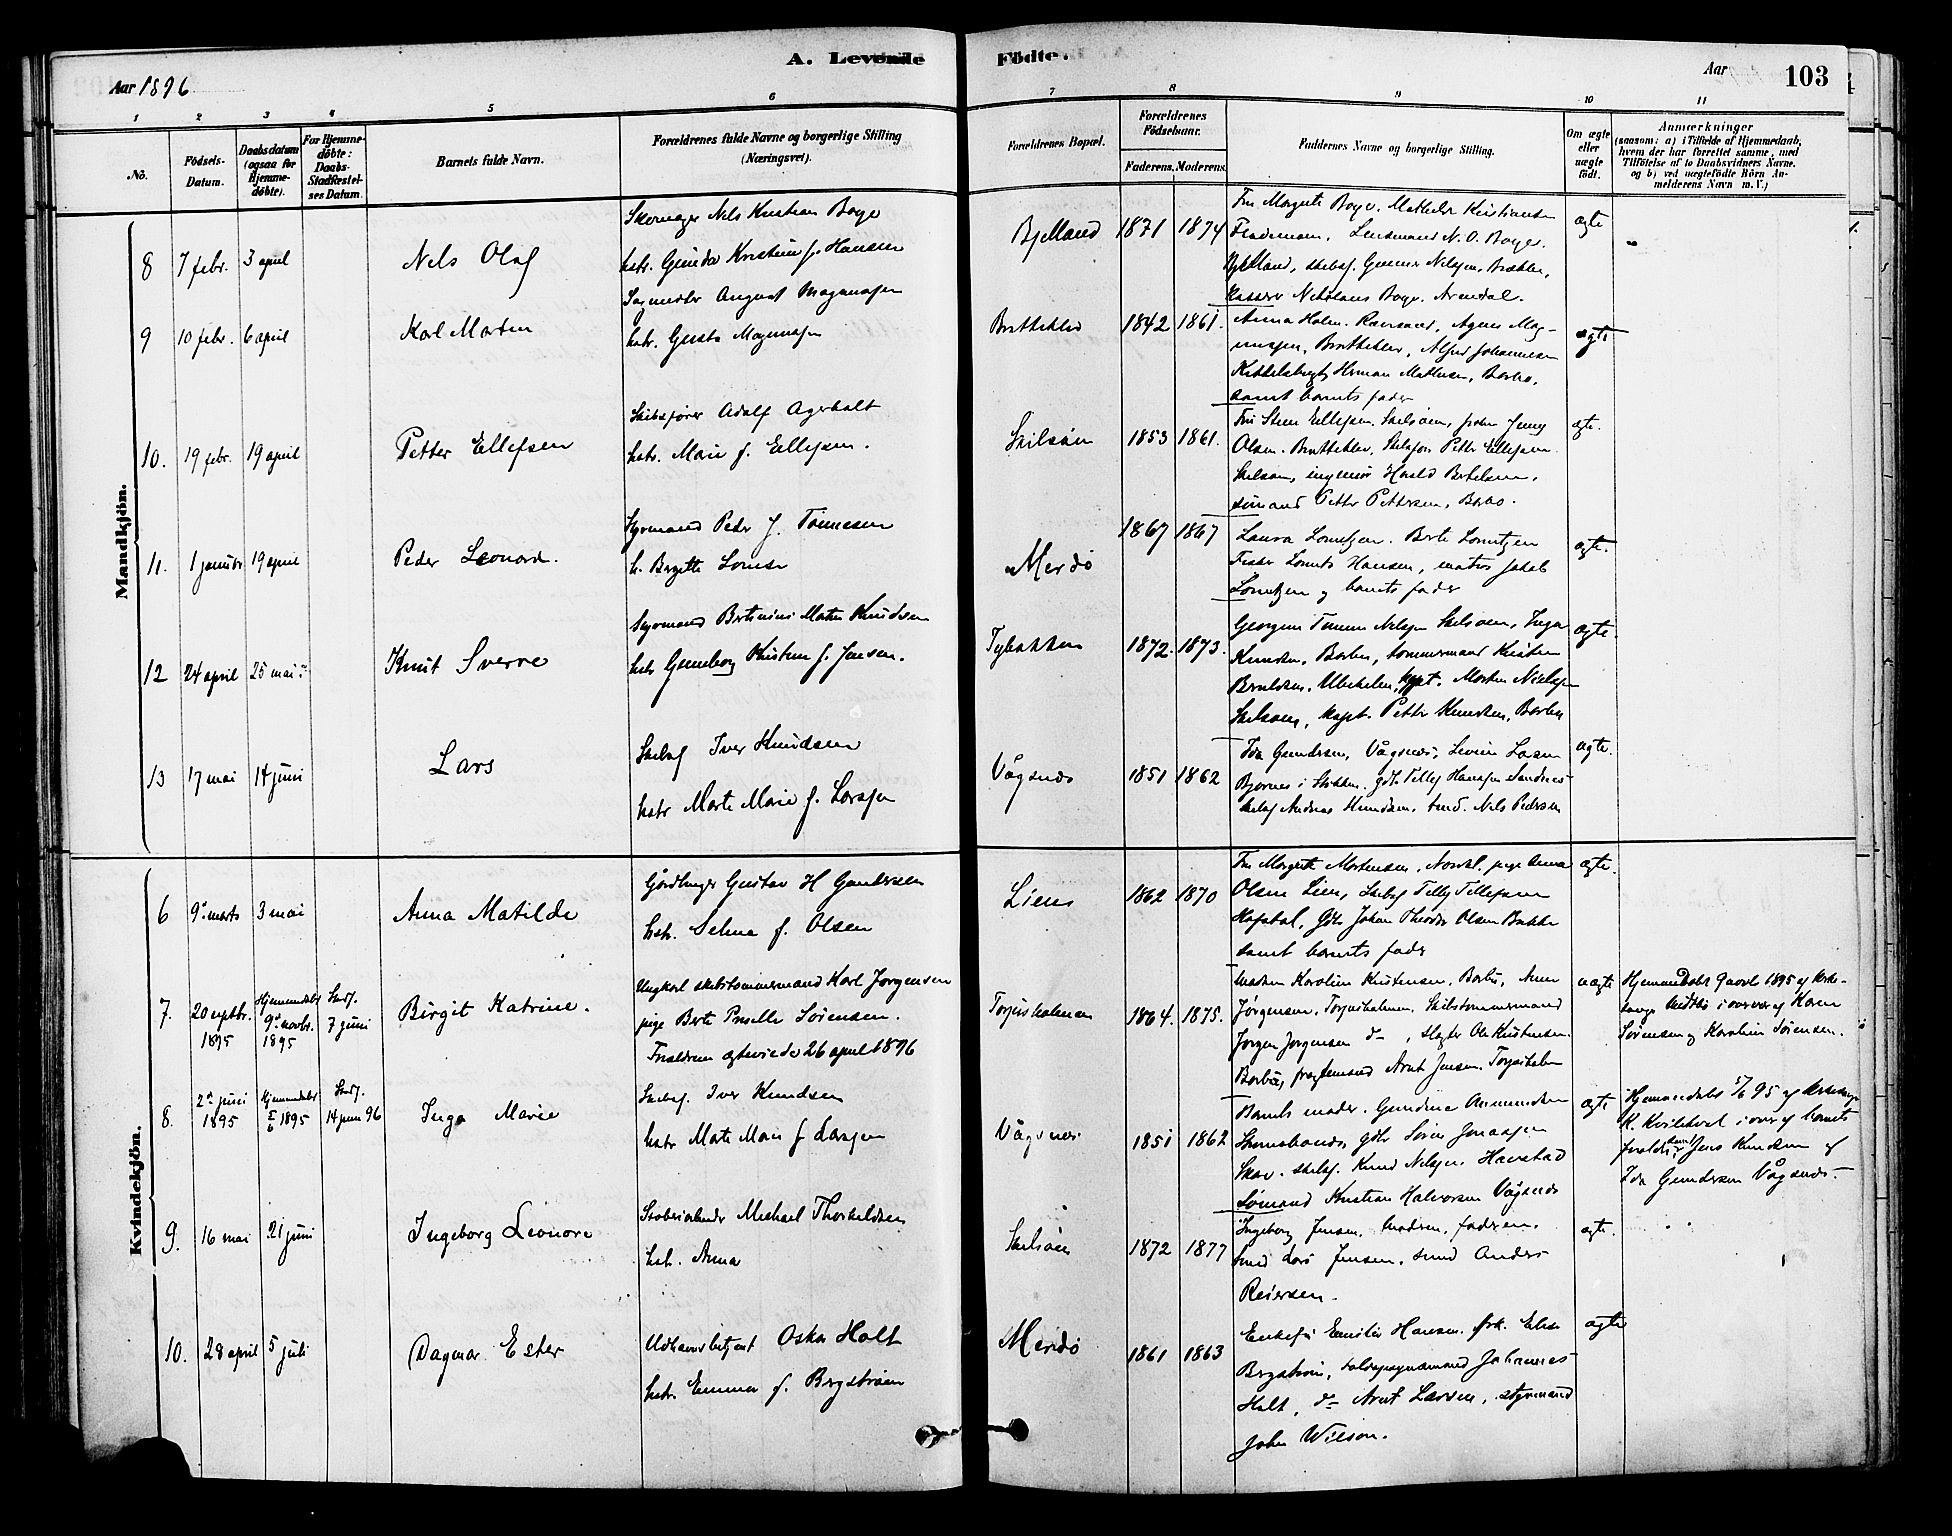 A. Levende Födte.
Aar 1896
Aar
103
1 2 3 4 5 6 7 8 9 10 11
No.
Födsels-Datum.
Daabsdatum (ogsaa for Hjemmedöbte).
For Hjemmedöbte: Daabs-Stadfæstelses Datum.
Barnets fulde Navn.
Forældrenes fulde Navne og borgerlige Stilling (Næringsvei).
Forældrenes Bopæl.
Forældrenes Födselsaar.
Faderens. Moderens.
Faddernes Navne og borgerlige Stilling.
Om ægte eller uægte födt.
Anmærkninger
(saasom: a) i Tilfælde af Hjemmedaab, hvem der har forrettet samme, med Tilföielse af to Daabsvidners Navne. og b) ved uægtefödte Börn Anmelderens Navn m. V.)
Mandkjön.
8 7 febr. 3 april Nels Olaf
Skomager Nils Kristian Boye
hstr. Gunda Kristine f. Hansen
Bjelland 1871 1874
Fru Margrete Boye. Mathilde Kristiansen
N. O. Boye.
Bjelland, Gunnar Nilsen,
Nikolaus Boye. Arendal.
ægte
9 10 febr. 6 april Karl Morten
August Magnusen
hstr. Gusta Magnusen
Brattekler 1842 1861.
Anna Holm. Agnes Mag-
nusen, Brattekler, Alfred Johannesen
Herman Mathisen, Barbo,
samt barnets fader
ægte
10. 19 febr. 19 april Petter Ellefsen
Skibsfører Adolf Agerholt
hstr. Marie f. Ellefsen.
Skilsøen 1853 1861.
Ellefsen, Skilsøen, Jenny
Olsen. Brattekler, Petter Ellefsen
Skilsøen, ingeniør Harald Bertelsen,
sømand Petter Pettersen, Barbo.
ægte.
11. 1 januar 19 april Peder Leonard.
Styrmand Peder J. Tønnesen
h. Birgitte Lovise
Merdø 1867 1867
Laura Lorentzen. Berte Lorentzen
Fisker Lorents Hansen, matros Jakob
Lorentzen og barnets fader
ægte.
12 24 april 25 mai Knut Sverre
Styrmand Bertinius Martin Knudsen
hstr Gunneborg Kristine f. Jensen.
Tybakken 1872. 1873.
Nilsen Skilsøen, Inga
Knudsen, Barbo, tømmermand Kristen
kapt. Morten Nielsen
Skilsøen, kapt. Petter Knudsen, Barbo
ægte.
13 17 mai 14 juni Lars
Skibsf Iver Knudsen
hstr Marte Marie f. Larsen
Vågsnes 1851 1862
Ida Gundersen, Vågsnes,
gdb. Tellef Hansen Sandnes
skibsf Andreas Knudsen, Nils Pedersen
ægte.
Kvindekjön.
6 9 marts 3 mai Anna Matilde
Gårdbruger Gustav H Gundersen
hstr. Selma f. Olsen
Liene 1862 1870
Fru Margrete Mortensen, pige Anna
Olsen Lien, Skibsf Tellef Tellefsen
Gdb Johan Theodor Olsen Bakke
samt barnets fader
ægte.
7. 20 septbr. 1895 Hjemmedøbt 9 novbr. 1895 Stadf. 7 juni Birgit Katrine.
Ungkarl skibstømmermand Karl Jørgensen
pige Berte Pernille Sørensen.
Forældrene ægteviede 26 april 1896
Torjusholmen 1864. 1875.
Madam Karoline Kristensen, Barbo, Anne
Jørgensen, Torjusholmen, Skibstømmermand
Jørgen Jørgensen do, slagter Ole Kristensen
Barbo, Arnt Jensen, Torjusholm
uægte
Hjemmedøbt 9 novb 1895 af kirke-
sanger i overvær af Karen
Sørensen og Karoline Sørensen.
8. 2 juni 1895 Hjemmedøbt 5/6 1895 Stadf. 14 juni 96 Inga Marie
Skibsf. Iver Knudsen
hstr Marte Marie f Larsen
Vågsnes 1851 1862
Barnets moder. Gundine Aanundsen
gdbr Søren Jonassen
Skov. skibsf. Knud Nilsen, Havstad
Sømand Kristian Halvorsen Vågsnes
ægte
Hjemmedøbt 5/6 95 af kirkesanger
K. Kvilekval i overv af barnets
forældre samt Jens Knudsen og
Ida Gundersen Vågsnes.
9. 16 mai 21 juni Ingeborg Leonore
Michael Thorkildsen
hstr. Anna
Skilsøen 1872 1877
Ingeborg Jensen, Madsen, faderen.
smed Lars Jensen, smed Anders
Reiersen.
ægte.
10. 28 april 5 juli Dagmar Ester
Udhavnsbetjent Oskar Holt
hstr. Emma f. Bergstrøm
Merdø 1861 1863
Enkefru Emilie Hansen. frk. Elise
Bergstrøm, Johannes
Holt, do Arnt Larsen, styrmand
John Wilson.
ægte